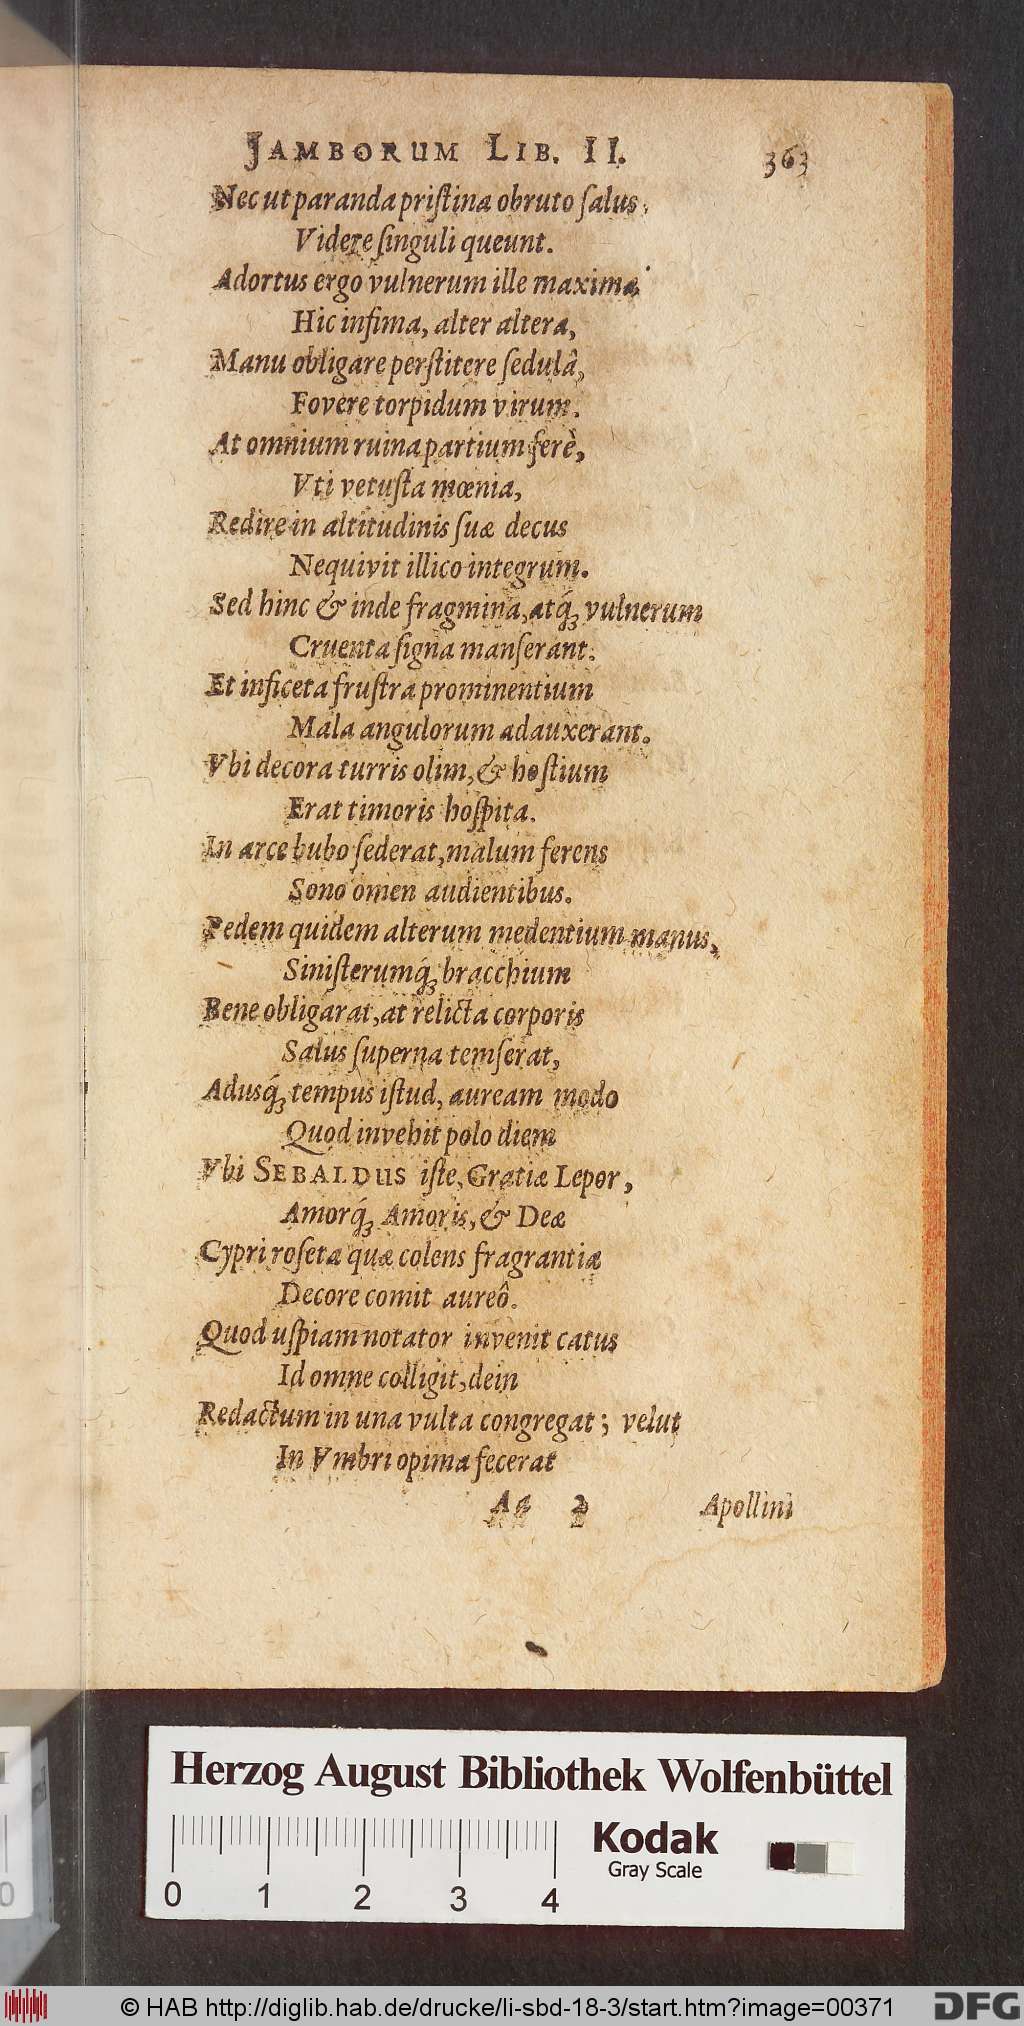 JAMBORUM LIB. II. 363
Nec ut paranda priſtina obruto ſalus
Videre ſinguli queunt.
Adortus ergo vulnerum ille maxima
Hic infima, alter altera,
Manu obligare perſtitere ſedulâ,
Fovere torpidum virum.
At omnium ruina partium ferè,
Vti vetuſta mœnia,
Redire in altitudinis ſuæ decus
Nequivit illico integrum.
Sed hinc & inde fragmina, atq́; vulnerum
Cruenta ſigna manſerant.
Et inficeta fruſtra prominentium
Mala angulorum adauxerant.
Vbi decora turris olim, & hoſtium
Erat timoris hoſpita.
In arce bubo ſederat, malum ferens
Sono omen audientibus.
Pedem quidem alterum medentium manus,
Siniſterumq́; bracchium
Bene obligarat, at relicta corporis
Salus ſuperna temſerat,
Adusq́; tempus iſtud, auream modo
Quod invehit polo diem
Vbi SEBALDUS iſte, Gratiæ Lepor,
Amorq́; Amoris, & Deæ
Cypri roſeta quæ colens fragrantiæ
Decore comit aureô.
Quod uſpiam notator invenit catus
Id omne colligit, dein
Redactum in una vulta congregat; velut
In Vmbri opima fecerat
Aa 2 Apollini
Herzog August Bibliothek Wolfenbüttel
Kodak
Gray Scale
0 1 2 3 4
© HAB http://diglib.hab.de/drucke/li-sbd-18-3/start.htm?image=00371
DFG